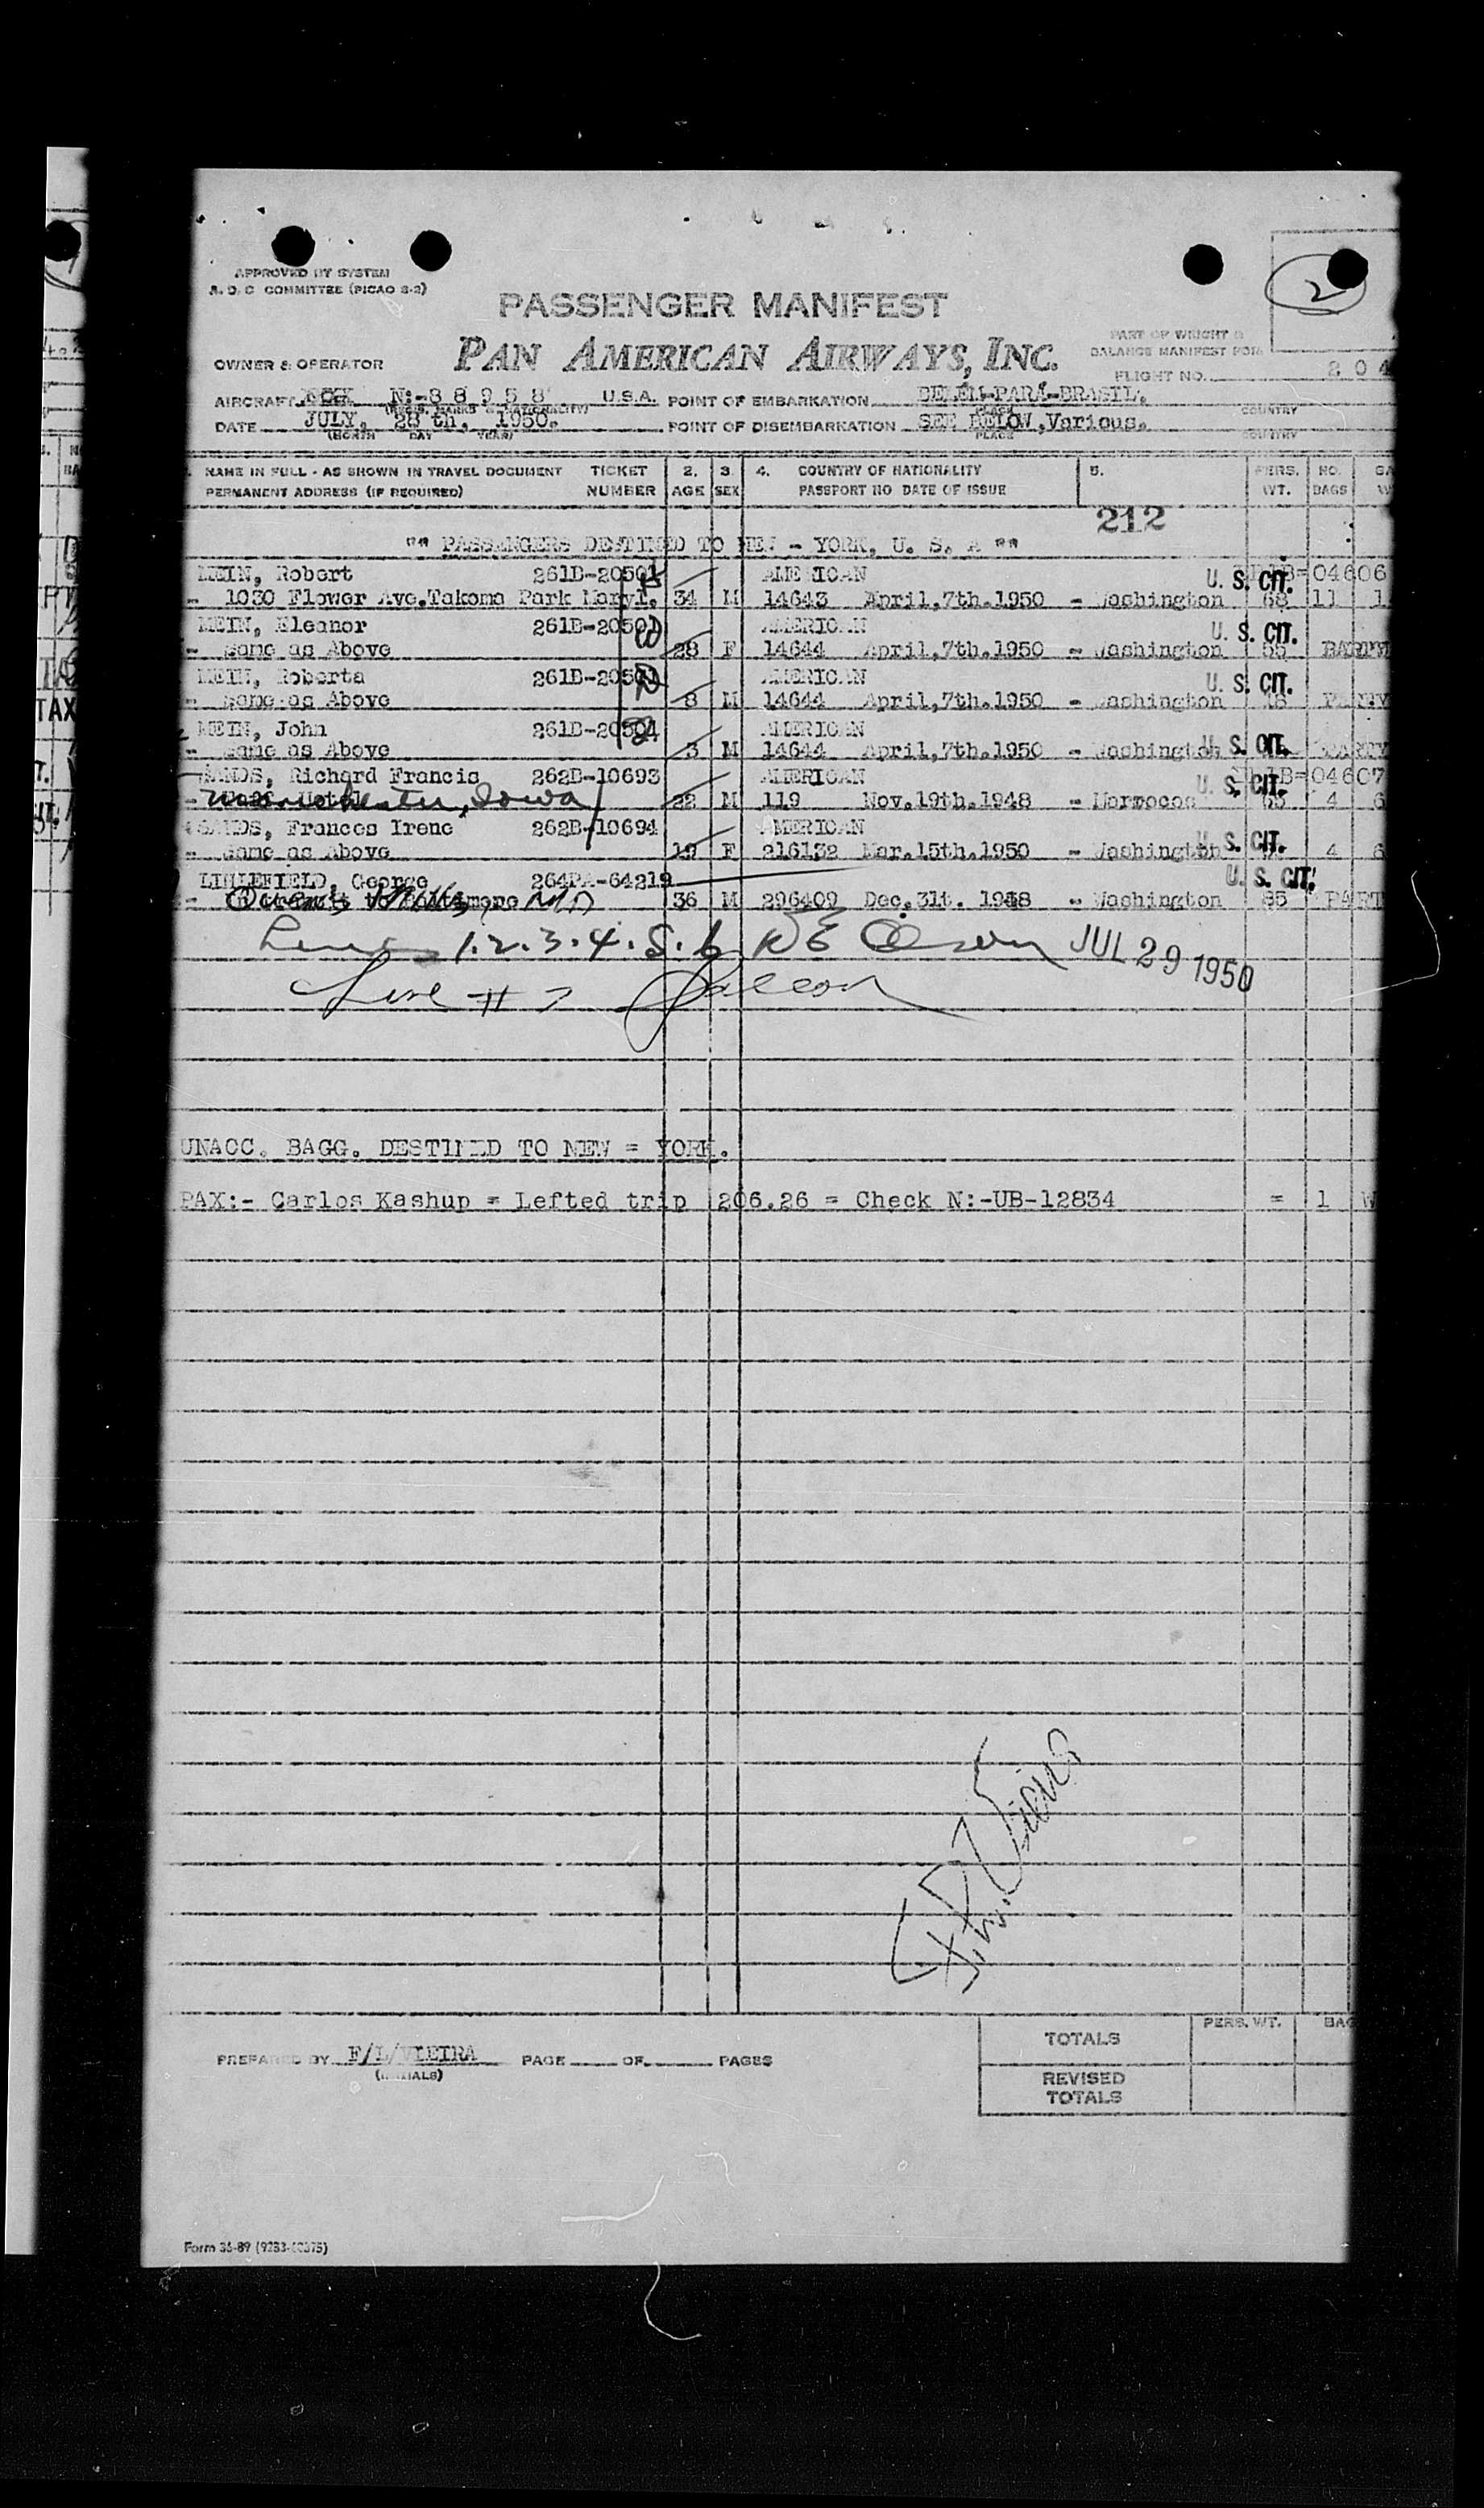 APPROVED BY SYSTEM
A. O. C COMMITTEE (PICAO S-2)
2
PASSENGER MANIFEST
PAN AMERICAN AIRWAYS, INC.
PART OF WEIGHT &
BALANCE MANIFEST FOR
OWNER & OPERATOR
FLIGHT NO. 204
AIRCRAFT N:-88958 U.S.A. POINT OF EMBARKATION BELÉM-PARÁ-BRASIL.
(REGIS. MARKS & NATIONALITY) PLACE COUNTRY
DATE JULY, 28th, 1950. POINT OF DISEMBARKATION SEE BELOW, Various.
(MONTH DAY YEAR) PLACE COUNTRY
NAME IN FULL - AS SHOWN IN TRAVEL DOCUMENT TICKET 2. 3. 4. COUNTRY OF NATIONALITY 5. PERS. NO.
PERMANENT ADDRESS (IF REQUIRED) NUMBER AGE SEX PASSPORT NO DATE OF ISSUE WT. BAGS
212
"" PASSENGERS DESTINED TO NEW - YORK, U. S. A ""
MEIN, Robert 261B-20501 AMERICAN U. S. CIT. 04606
- 1030 Flower Ave.Takoma Park Maryl. 34 M 14643 April,7th.1950 - Washington 68 11
MEIN, Eleanor 261B-20501 AMERICAN U. S. CIT.
- Same as Above 28 F 14644 April,7th.1950 - Washington 55
MEIN, Roberta 261B-20501 AMERICAN U. S. CIT.
- Same as Above 8 M 14644 April,7th.1950 - Washington
MEIN, John 261B-20504 AMERICAN
- Same as Above 3 M 14644 April,7th.1950 - Washington U. S. CIT.
SANDS, Richard Francis 262B-10693 AMERICAN U. S. CIT. 04607
- Manchester, Iowa 22 M 119 Nov.19th.1948 - Morrocos 65 4 6
SANDS, Frances Irene 262B-10694 AMERICAN
- Same as Above 19 F 216132 Mar.15th.1950 - Washington U. S. CIT. 4 6
LITTLEFIELD, George 264PA-64219 U. S. CIT.
- Owings Mills, MD 36 M 296409 Dec.31t. 1948 - Washington 85
Lines 1.2.3.4.5.6 JUL 29 1950
Line # 7
UNACC. BAGG. DESTINED TO NEW = YORK.
PAX:- Carlos Kashup = Lefted trip 206.26 = Check N:-UB-12834 = 1
PREPARED BY F/L/VIEIRA PAGE OF PAGES
(INITIALS)
TOTALS PERS. WT. BAG
REVISED
TOTALS